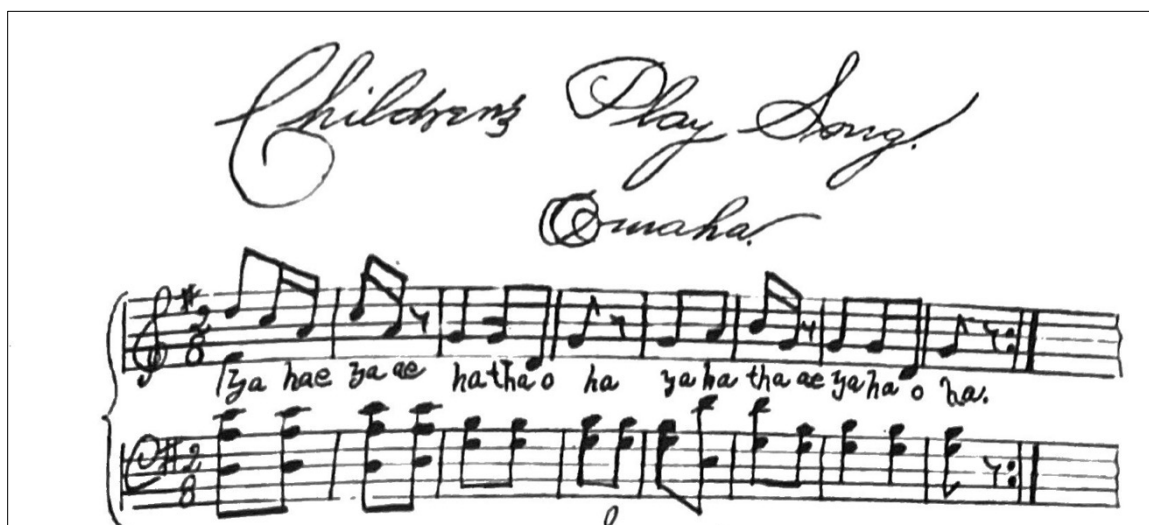 Children's Play Song.
Omaha.
2
8
Ya hae ya ae ha tha o ha ya ha tha ae ya ha o ha.
2
8